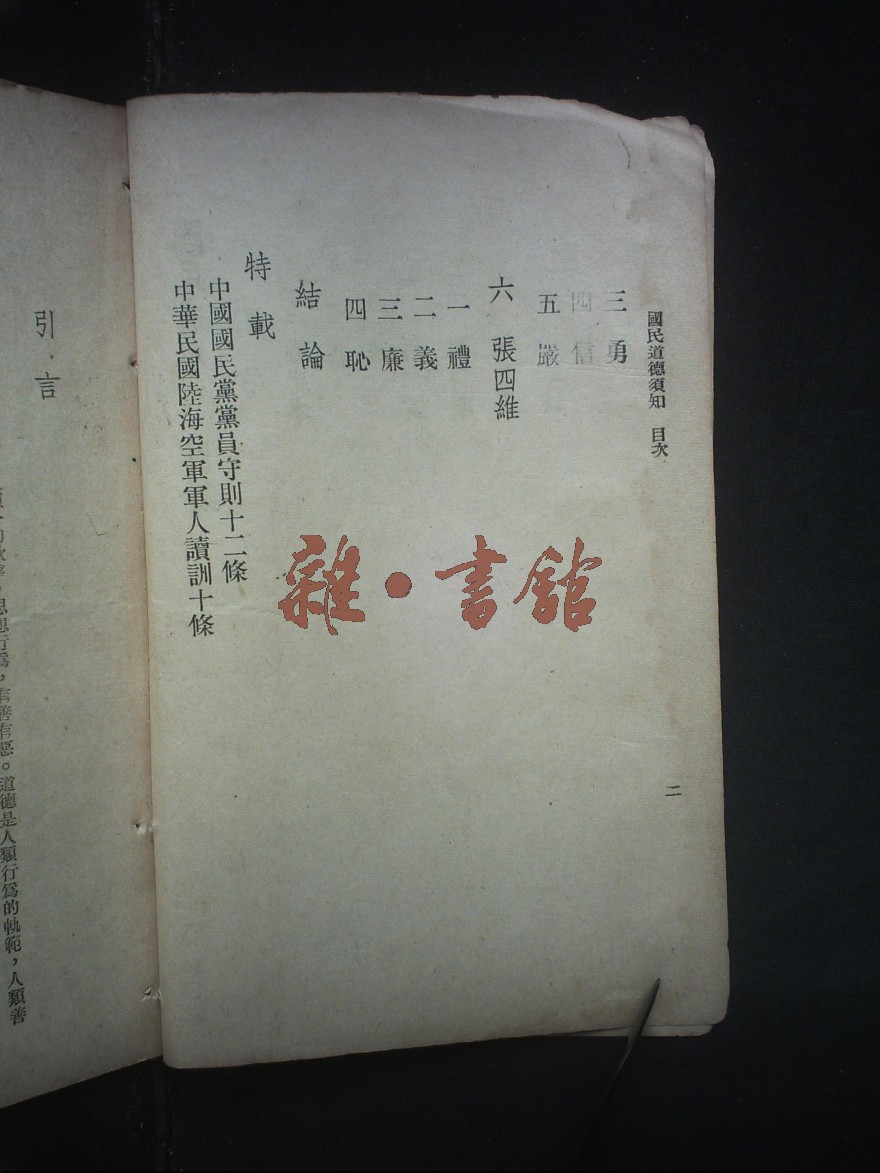 國民道德須知 目次
三 勇
四 信
五 嚴
六 張四維
一 禮
二 義
三 廉
四 恥
結論
特載
中國國民黨黨員守則十二條
中華民國陸海空軍軍人讀訓十條
二
雜•書館
引言
思想行爲,有善有惡。道德是人類行爲的軌範,人類善